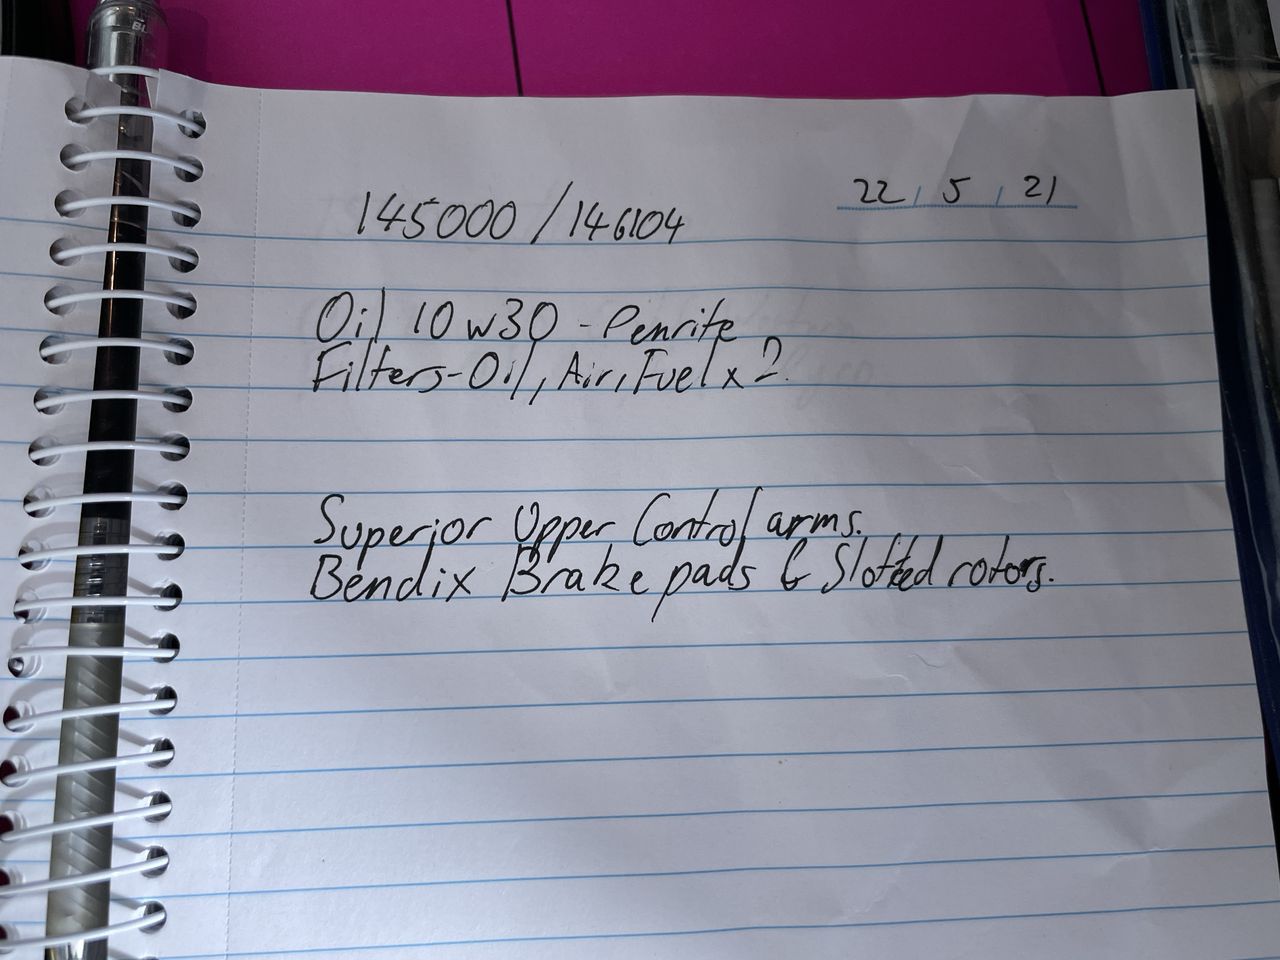 22 / 5 / 21
145000 / 146104
Oil 10w30 - Penrite
Filters - Oil, Air, Fuel x 2.
Superior Upper Control arms.
Bendix Brake pads & Slotted rotors.